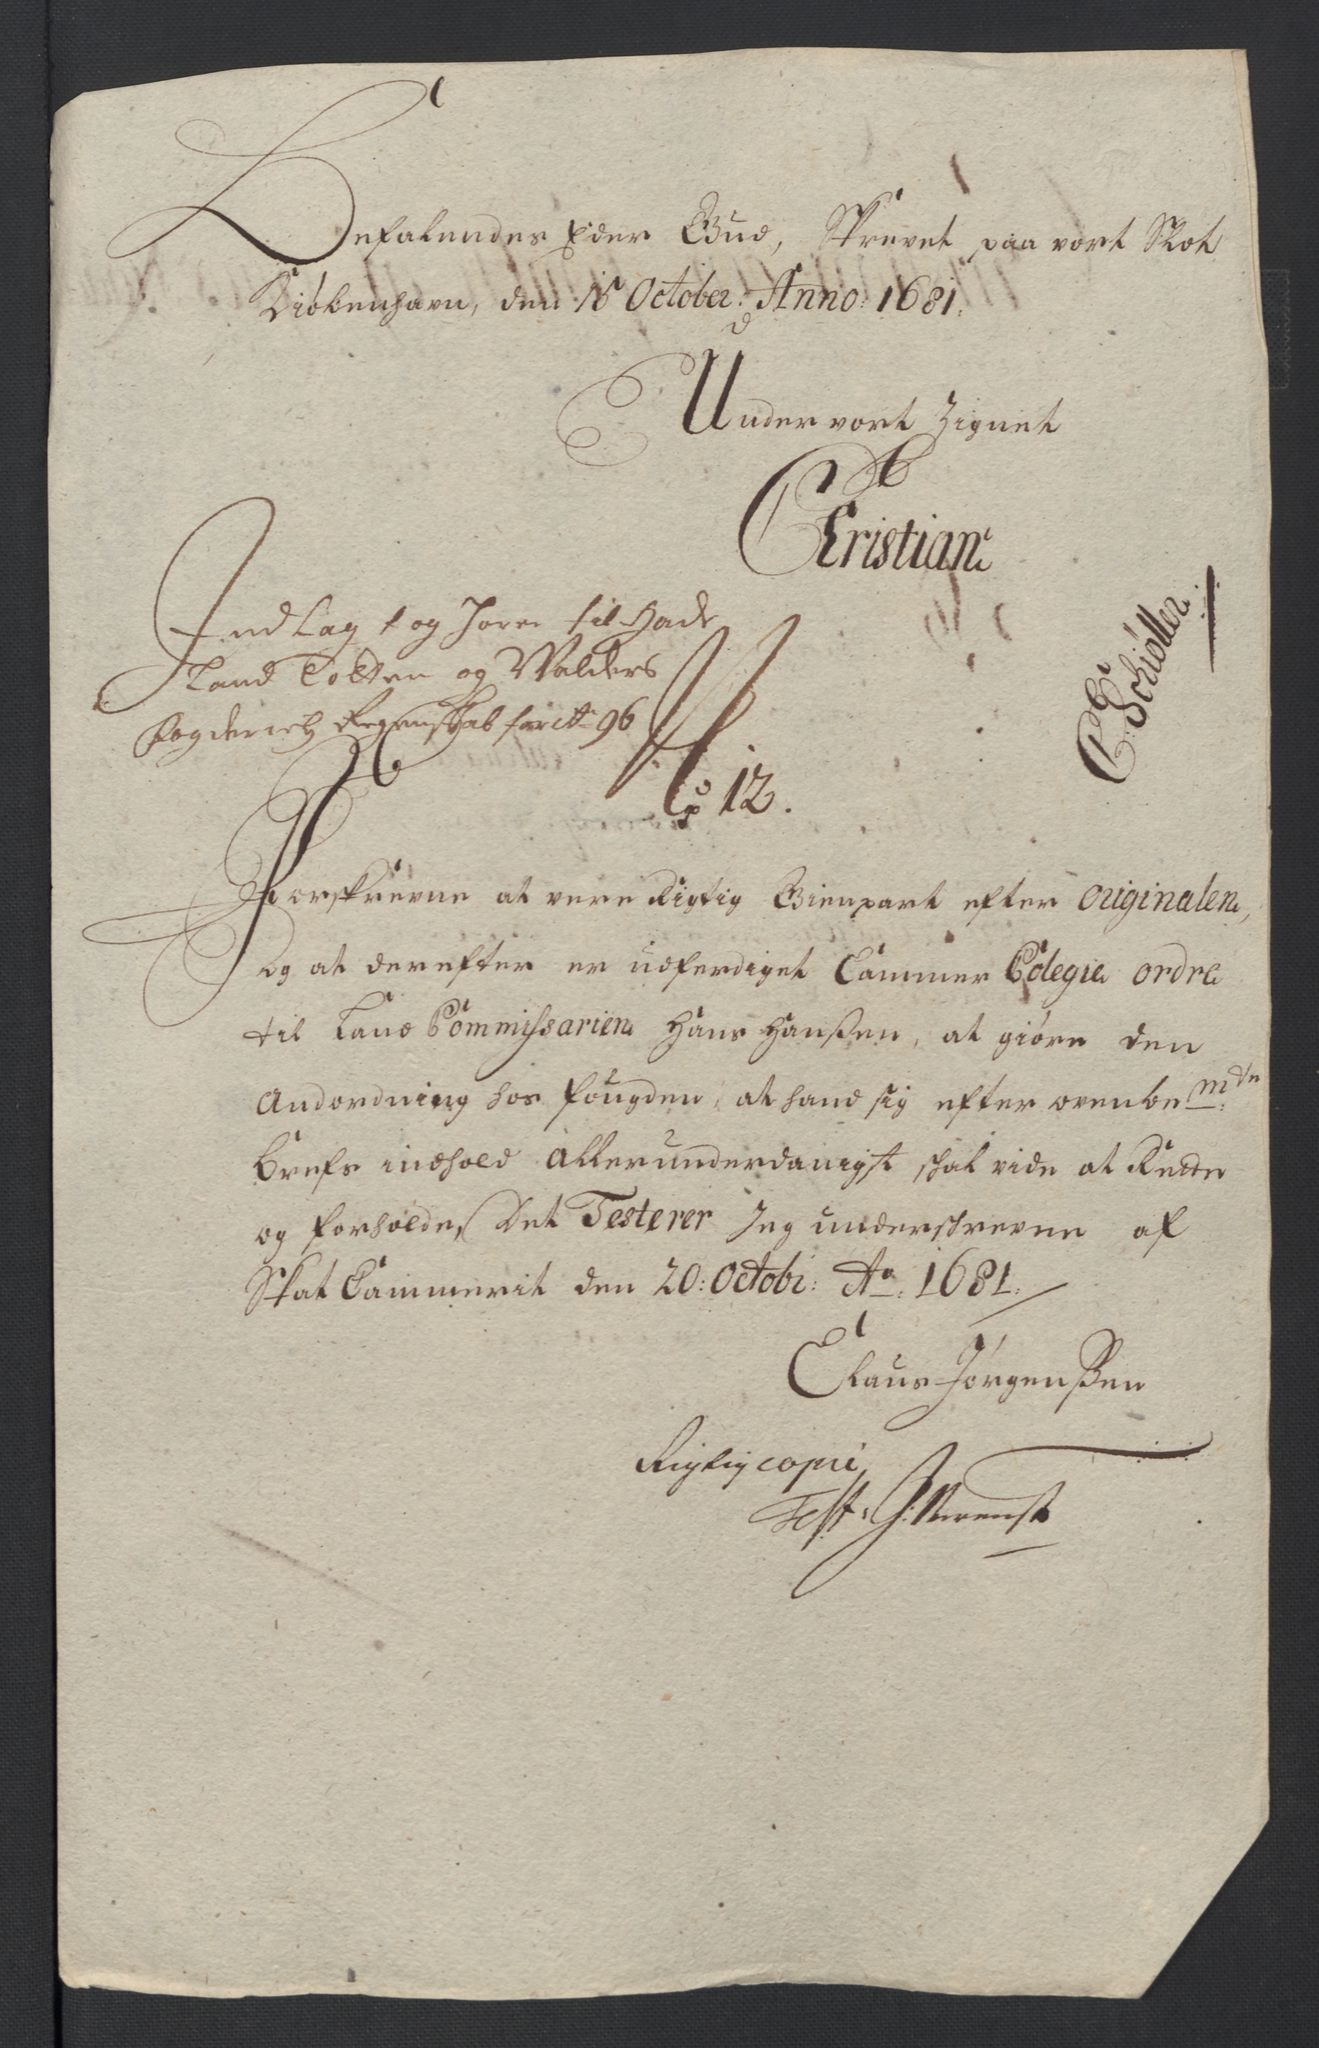 Befalendes Eder Gud, Skrevet paa vort Slot
Kiöbenhavn, den 15 October: Anno: 1681.
Under vort Zignet
Christian
C: Schiøller
Ind Lagt og Hører til Hade
Land Totten og Walders
Fogderies Regenskab for Ao 96
No 12.
Forskrevne at vere Rigtig Gienpart efter Originalen,
og at derefter er udferdiget Cammer Colegie ordre
til Land Commissarien Hans Hanßen, at giöre den
Andordning hos fougden, at hand sig efter ovenbe mte
brefs indhold allerunderdanigst skal vide at Rette
og forholde, Det Testerer Jeg underskrevne af
Skat Cammerit den 20: Octobr: Ao: 1681.
Claus Jörgenßen
Rigtig copie
Test: